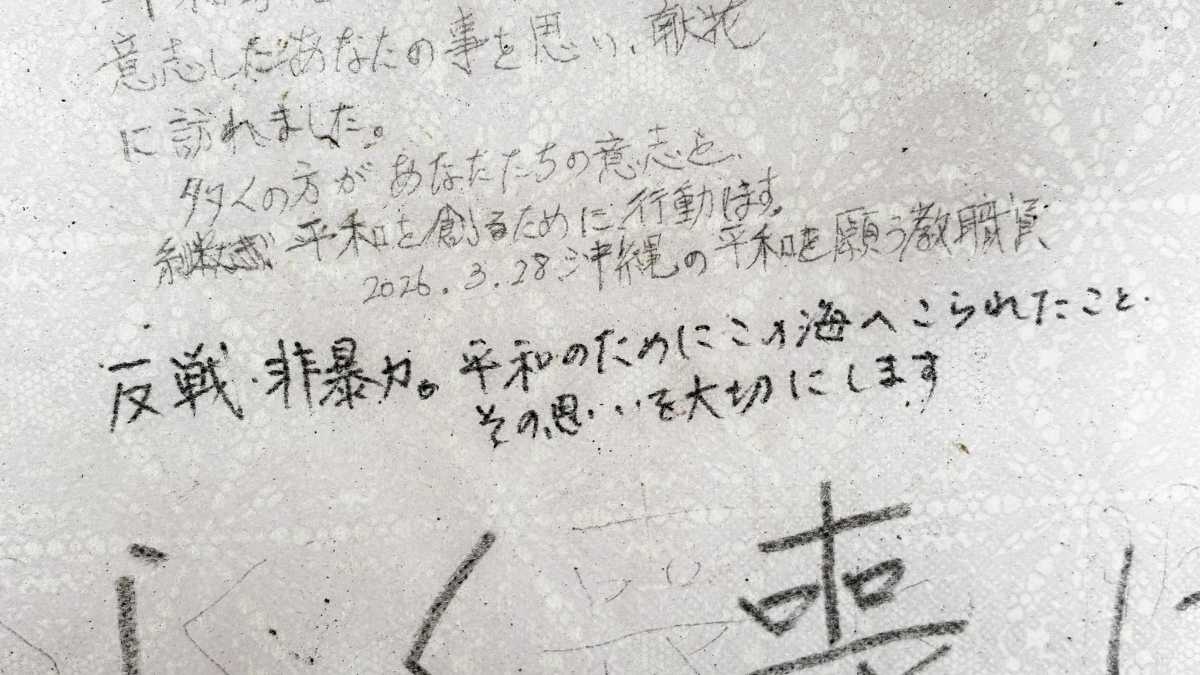 意志したあなたの事を思い、献花
に訪れました。
多くの方があなたたちの意志を、
継ぎ 平和を創るために行動します。
2026.3.28 沖縄の平和を願う教職員
反戦・非暴力。平和のためにこの海へこられたこと、
その思いを大切にします
く 喪